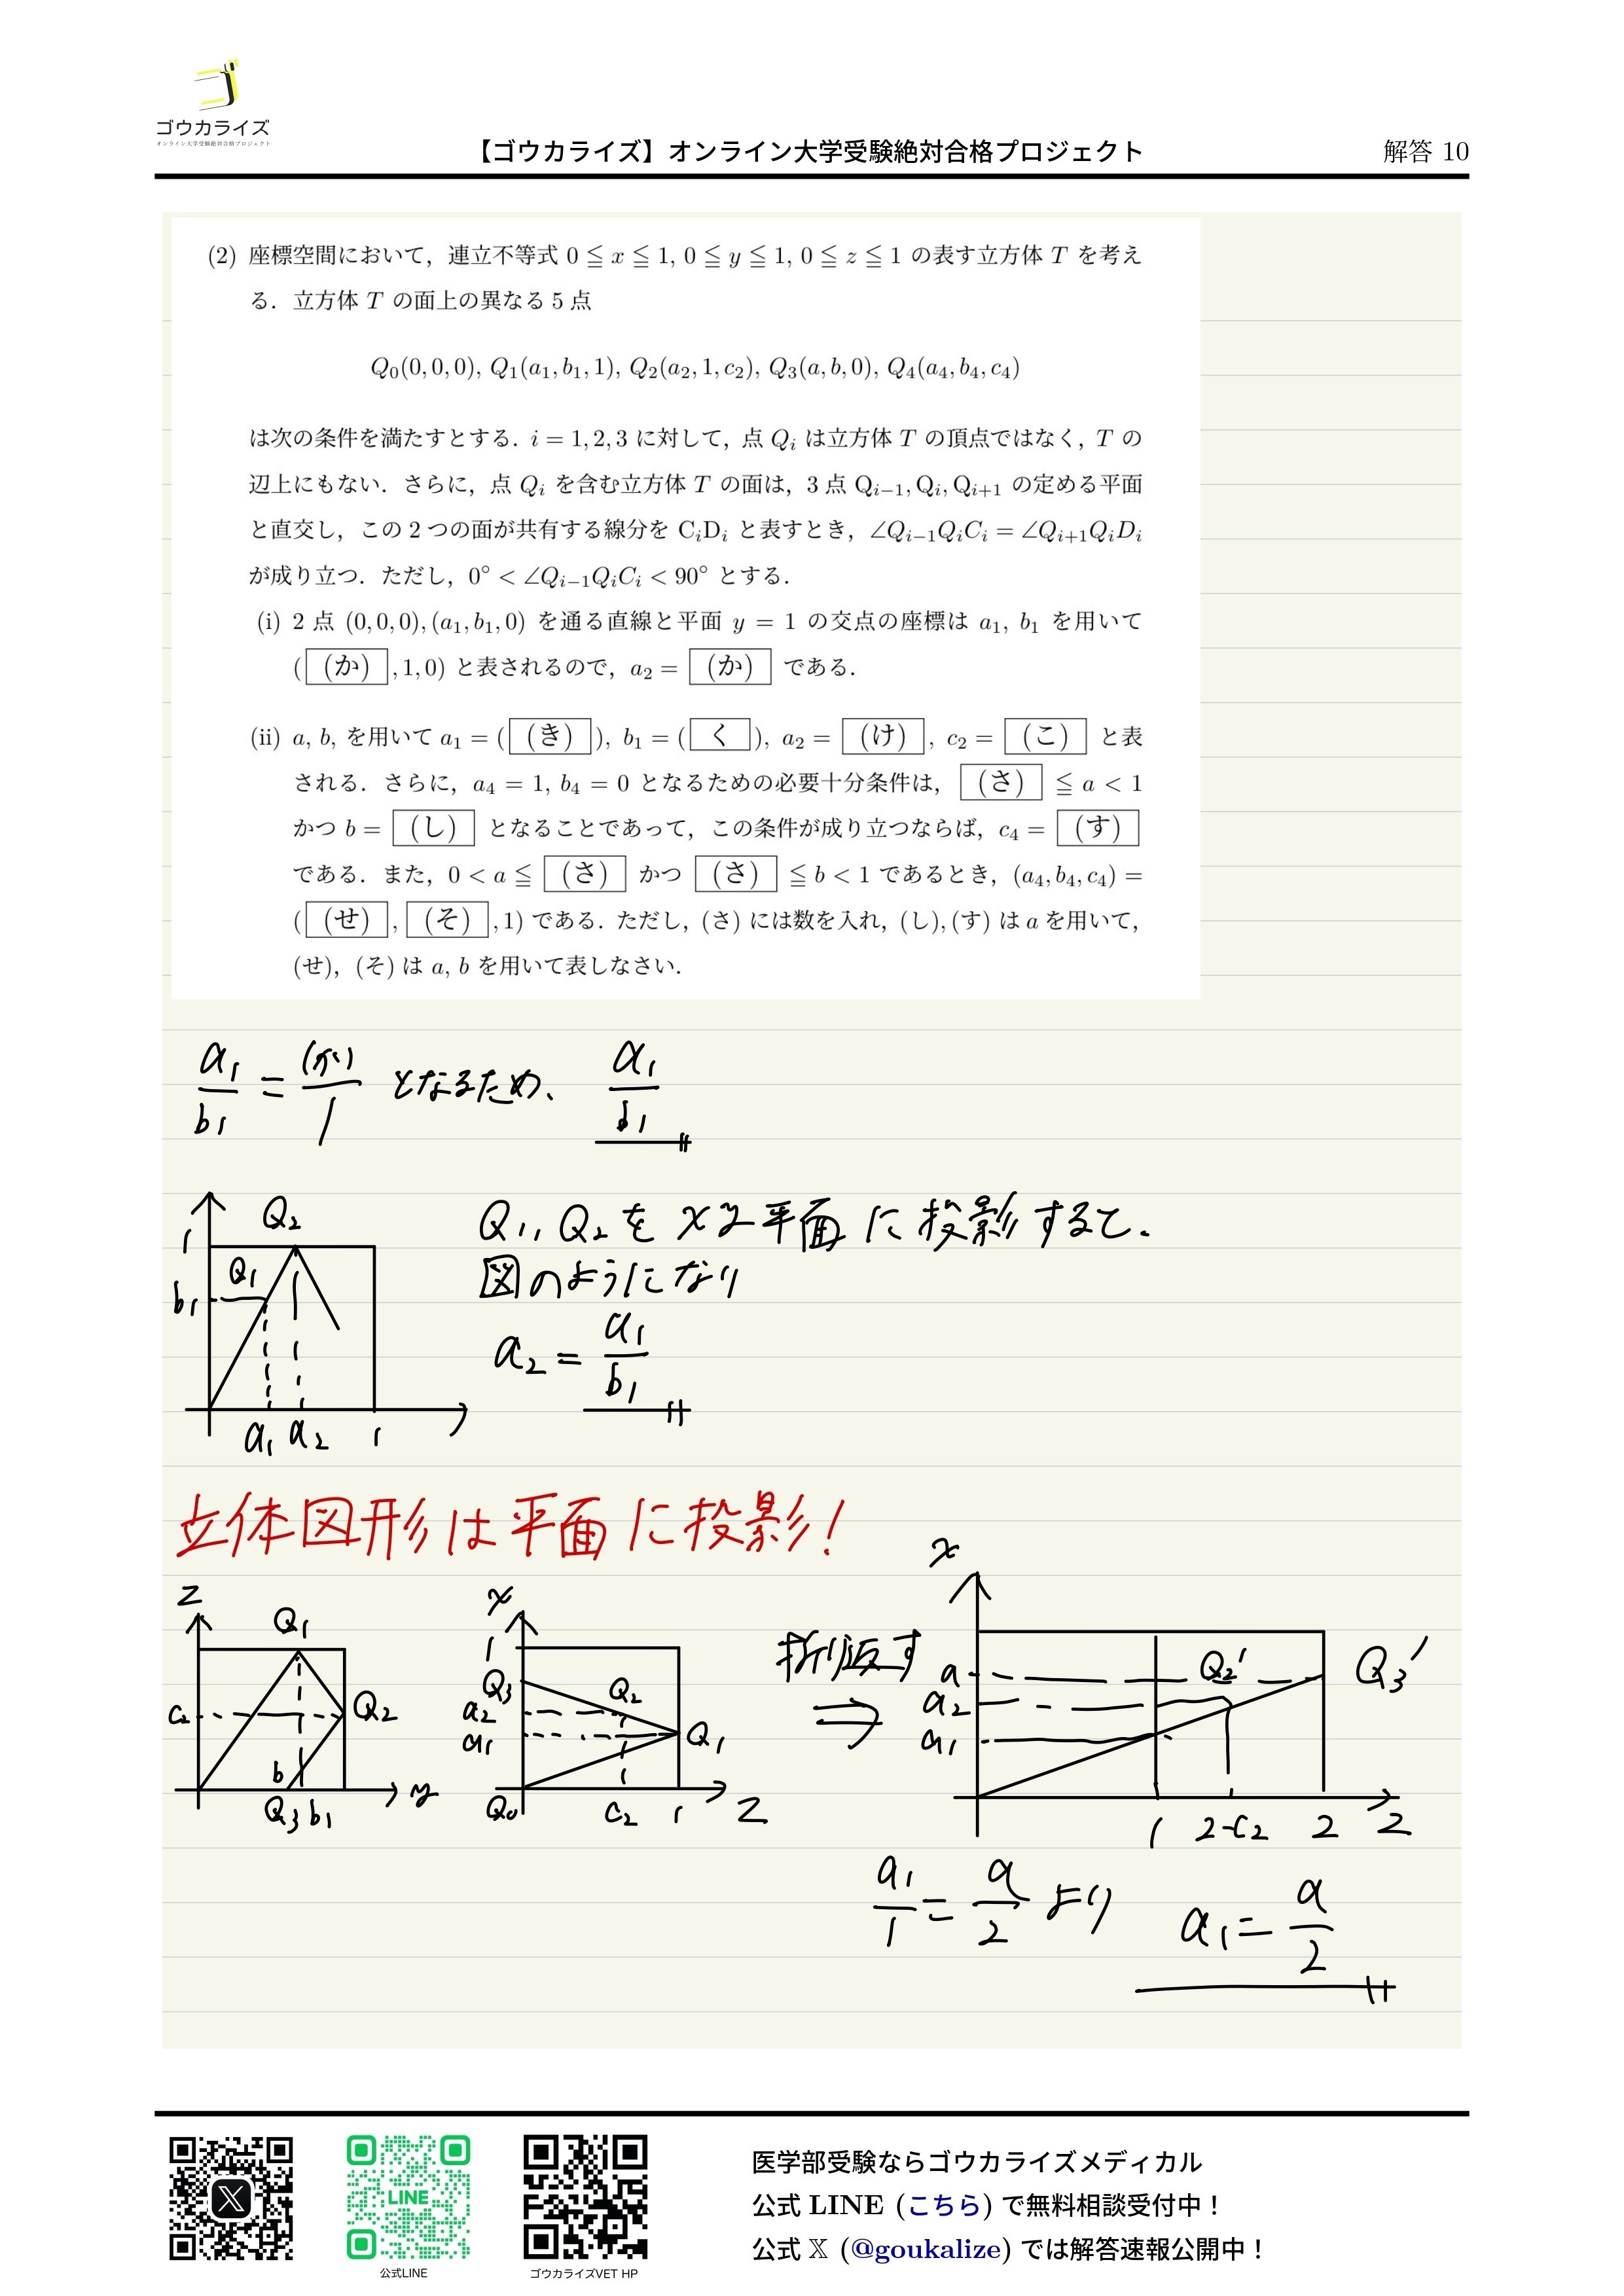 ゴウカライズ
オンライン大学受験絶対合格プロジェクト
【ゴウカライズ】オンライン大学受験絶対合格プロジェクト
解答 10
(2) 座標空間において，連立不等式 0 ≦ x ≦ 1, 0 ≦ y ≦ 1, 0 ≦ z ≦ 1 の表す立方体 T を考え
る．立方体 T の面上の異なる 5 点
Q₀(0, 0, 0), Q₁(a₁, b₁, 1), Q₂(a₂, 1, c₂), Q₃(a, b, 0), Q₄(a₄, b₄, c₄)
は次の条件を満たすとする．i = 1, 2, 3 に対して，点 Qᵢ は立方体 T の頂点ではなく，T の
辺上にもない．さらに，点 Qᵢ を含む立方体 T の面は，3 点 Qᵢ₋₁, Qᵢ, Qᵢ₊₁ の定める平面
と直交し，この 2 つの面が共有する線分を CᵢDᵢ と表すとき，∠Qᵢ₋₁QᵢCᵢ = ∠Qᵢ₊₁QᵢDᵢ
が成り立つ．ただし，0° < ∠Qᵢ₋₁QᵢCᵢ < 90° とする．
(i) 2 点 (0, 0, 0), (a₁, b₁, 0) を通る直線と平面 y = 1 の交点の座標は a₁, b₁ を用いて
( (か) , 1, 0) と表されるので，a₂ = (か) である．
(ii) a, b, を用いて a₁ = ( (き) ), b₁ = ( く ), a₂ = (け) , c₂ = (こ) と表
される．さらに，a₄ = 1, b₄ = 0 となるための必要十分条件は， (さ) ≦ a < 1
かつ b = (し) となることであって，この条件が成り立つならば，c₄ = (す)
である．また，0 < a ≦ (さ) かつ (さ) ≦ b < 1 であるとき，(a₄, b₄, c₄) =
( (せ) , (そ) , 1) である．ただし，(さ) には数を入れ，(し), (す) は a を用いて，
(せ)，(そ) は a, b を用いて表しなさい．
a₁/b₁ = (か)/1 となるため、 a₁/b₁
Q₂
1
Q₁
b₁
a₁ a₂ 1
Q₁, Q₂ を xy平面に投影すると、
図のようになり
a₂ = a₁/b₁
立体図形は平面に投影！
z
Q₁
c₂
Q₂
b
y
Q₃ b₁
x
1
Q₃
a₂
a₁
Q₂
Q₁
Q₀
c₂ 1 z
折り返す
⇒
x
a
a₂
a₁
Q₂′
Q₃′
1 2-c₂ 2 z
a₁/1 = a/2 より a₁ = a/2
LINE
公式LINE
ゴウカライズVET HP
医学部受験ならゴウカライズメディカル
公式 LINE (こちら) で無料相談受付中！
公式 𝕏 (@goukalize) では解答速報公開中！